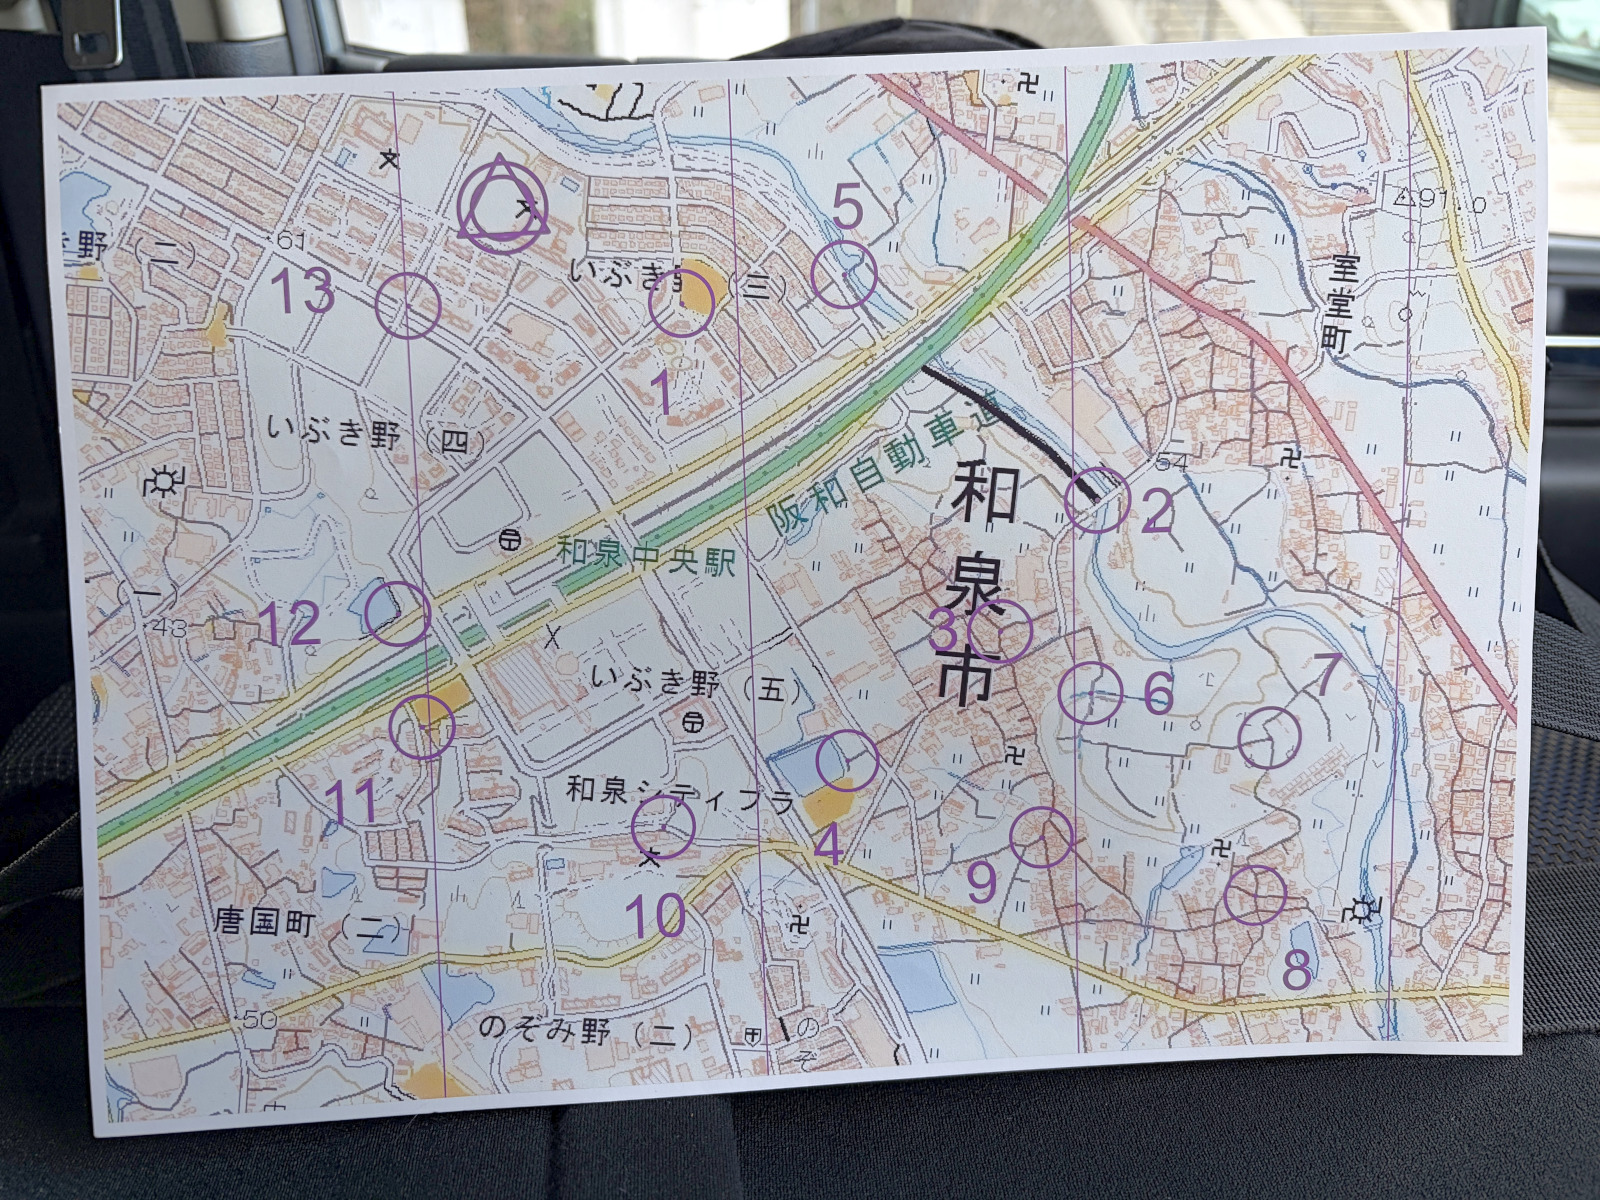 5
91.0
61
野(二)
13
いぶき野(三)
室堂町
1
いぶき野(四)
阪和自動車道
和泉市
54
2
和泉中央駅
12
43
3
いぶき野(五)
6
7
11
和泉シティプラ
4
9
10
唐国町(二)
8
50
のぞみ野(二)
のぞ